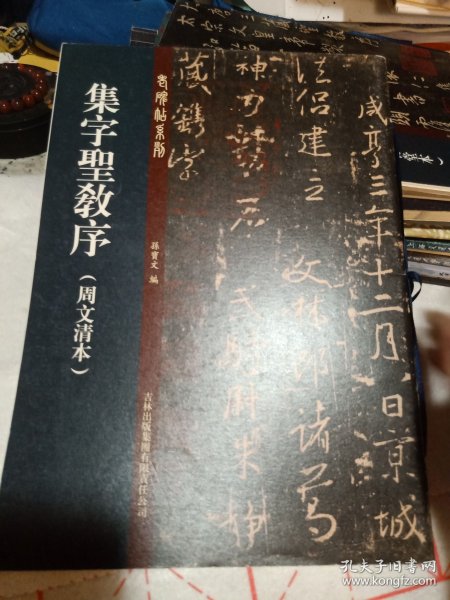 集字聖教序
（周文清本）
老碑帖系列
孫寶文 編
吉林出版集團有限責任公司
咸亨三年十二月八日京城
法侶建之 文林郎諸葛
神力勒石 武騎尉朱静
藏鐫字
孔夫子旧书网
www.kongfz.com